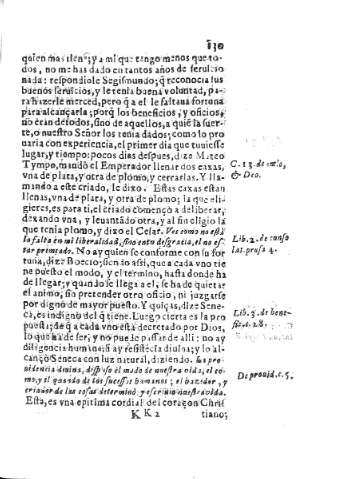 130
quien mas tiene; y a mi que tengo menos que to-
dos, no me has dado en tantos años de seruicio
nada: respondiole Segismundo; q̃ reconocia sus
buenos seruicios, y le tenia buena voluntad, pa-
ra hazerle merced, pero q̃ a el le faltaua fortuna
para alcançarla; porq̃ los beneficios, y oficios,
no eran de todos, sino de aquellos, a quiẽ la suer-
te, o nuestro Señor los tenia dados; como lo pro
uaria con experiencia, el primer dia que tuuiesse
lugar, y tiempo: pocos dias despues, dize Mateo
Tympo, mandò el Emperador llenar dos caxas,
vna de plata, y otra de plomo, y cerrarlas. Y lla-
mando a este criado, le dixo. Estas caxas estan
llenas, vna de plata, y otra de plomo; la que eli-
gieres, es para ti, el criado començò a deliberar,
dexando vna, y leuantãdo otra, y al fin eligio la
que tenia plomo, y dixo el Cesar. Ves como no està
la falta en mi liberalidad, sino en tu desgracia, el no es-
tar premiado. No ay quien se conforme con su for
tuna, dize Boecio; siendo assi, que a cada vno tie
ne puesto el modo, y el termino, hasta donde ha
de llegar; y quando se llega a el, se ha de quietar
el animo, sin pretender otro oficio, ni juzgarse
por digno de mayor puesto. Y quiças, dize Sene-
ca, es indigno del q̃ tiene. Luego cierta es la pro
puesta; de q̃ a cada vno està decretado por Dios,
lo que ha de ser, y no puede passar de alli: no ay
diligencia humana, si ay resistẽcia diuina; y lo al-
cançò Seneca con luz natural, diziendo. La pro
uidencia diuina, dispuso el modo de nuestra vida, el co-
mo, y el quando de los sucessos humanos; el hazedor, y
criador de las cosas determinò, y escriuio nuestra vida.
Esta, es vna epitima cordial del coraçon Chris
K K 2 tiano;
C. 13. de
& Deo.
Lib. 2. de conso
lat. prosa 4.
Lib. 3. de bene-
fic. c. 28.
De prouid. c. 5.